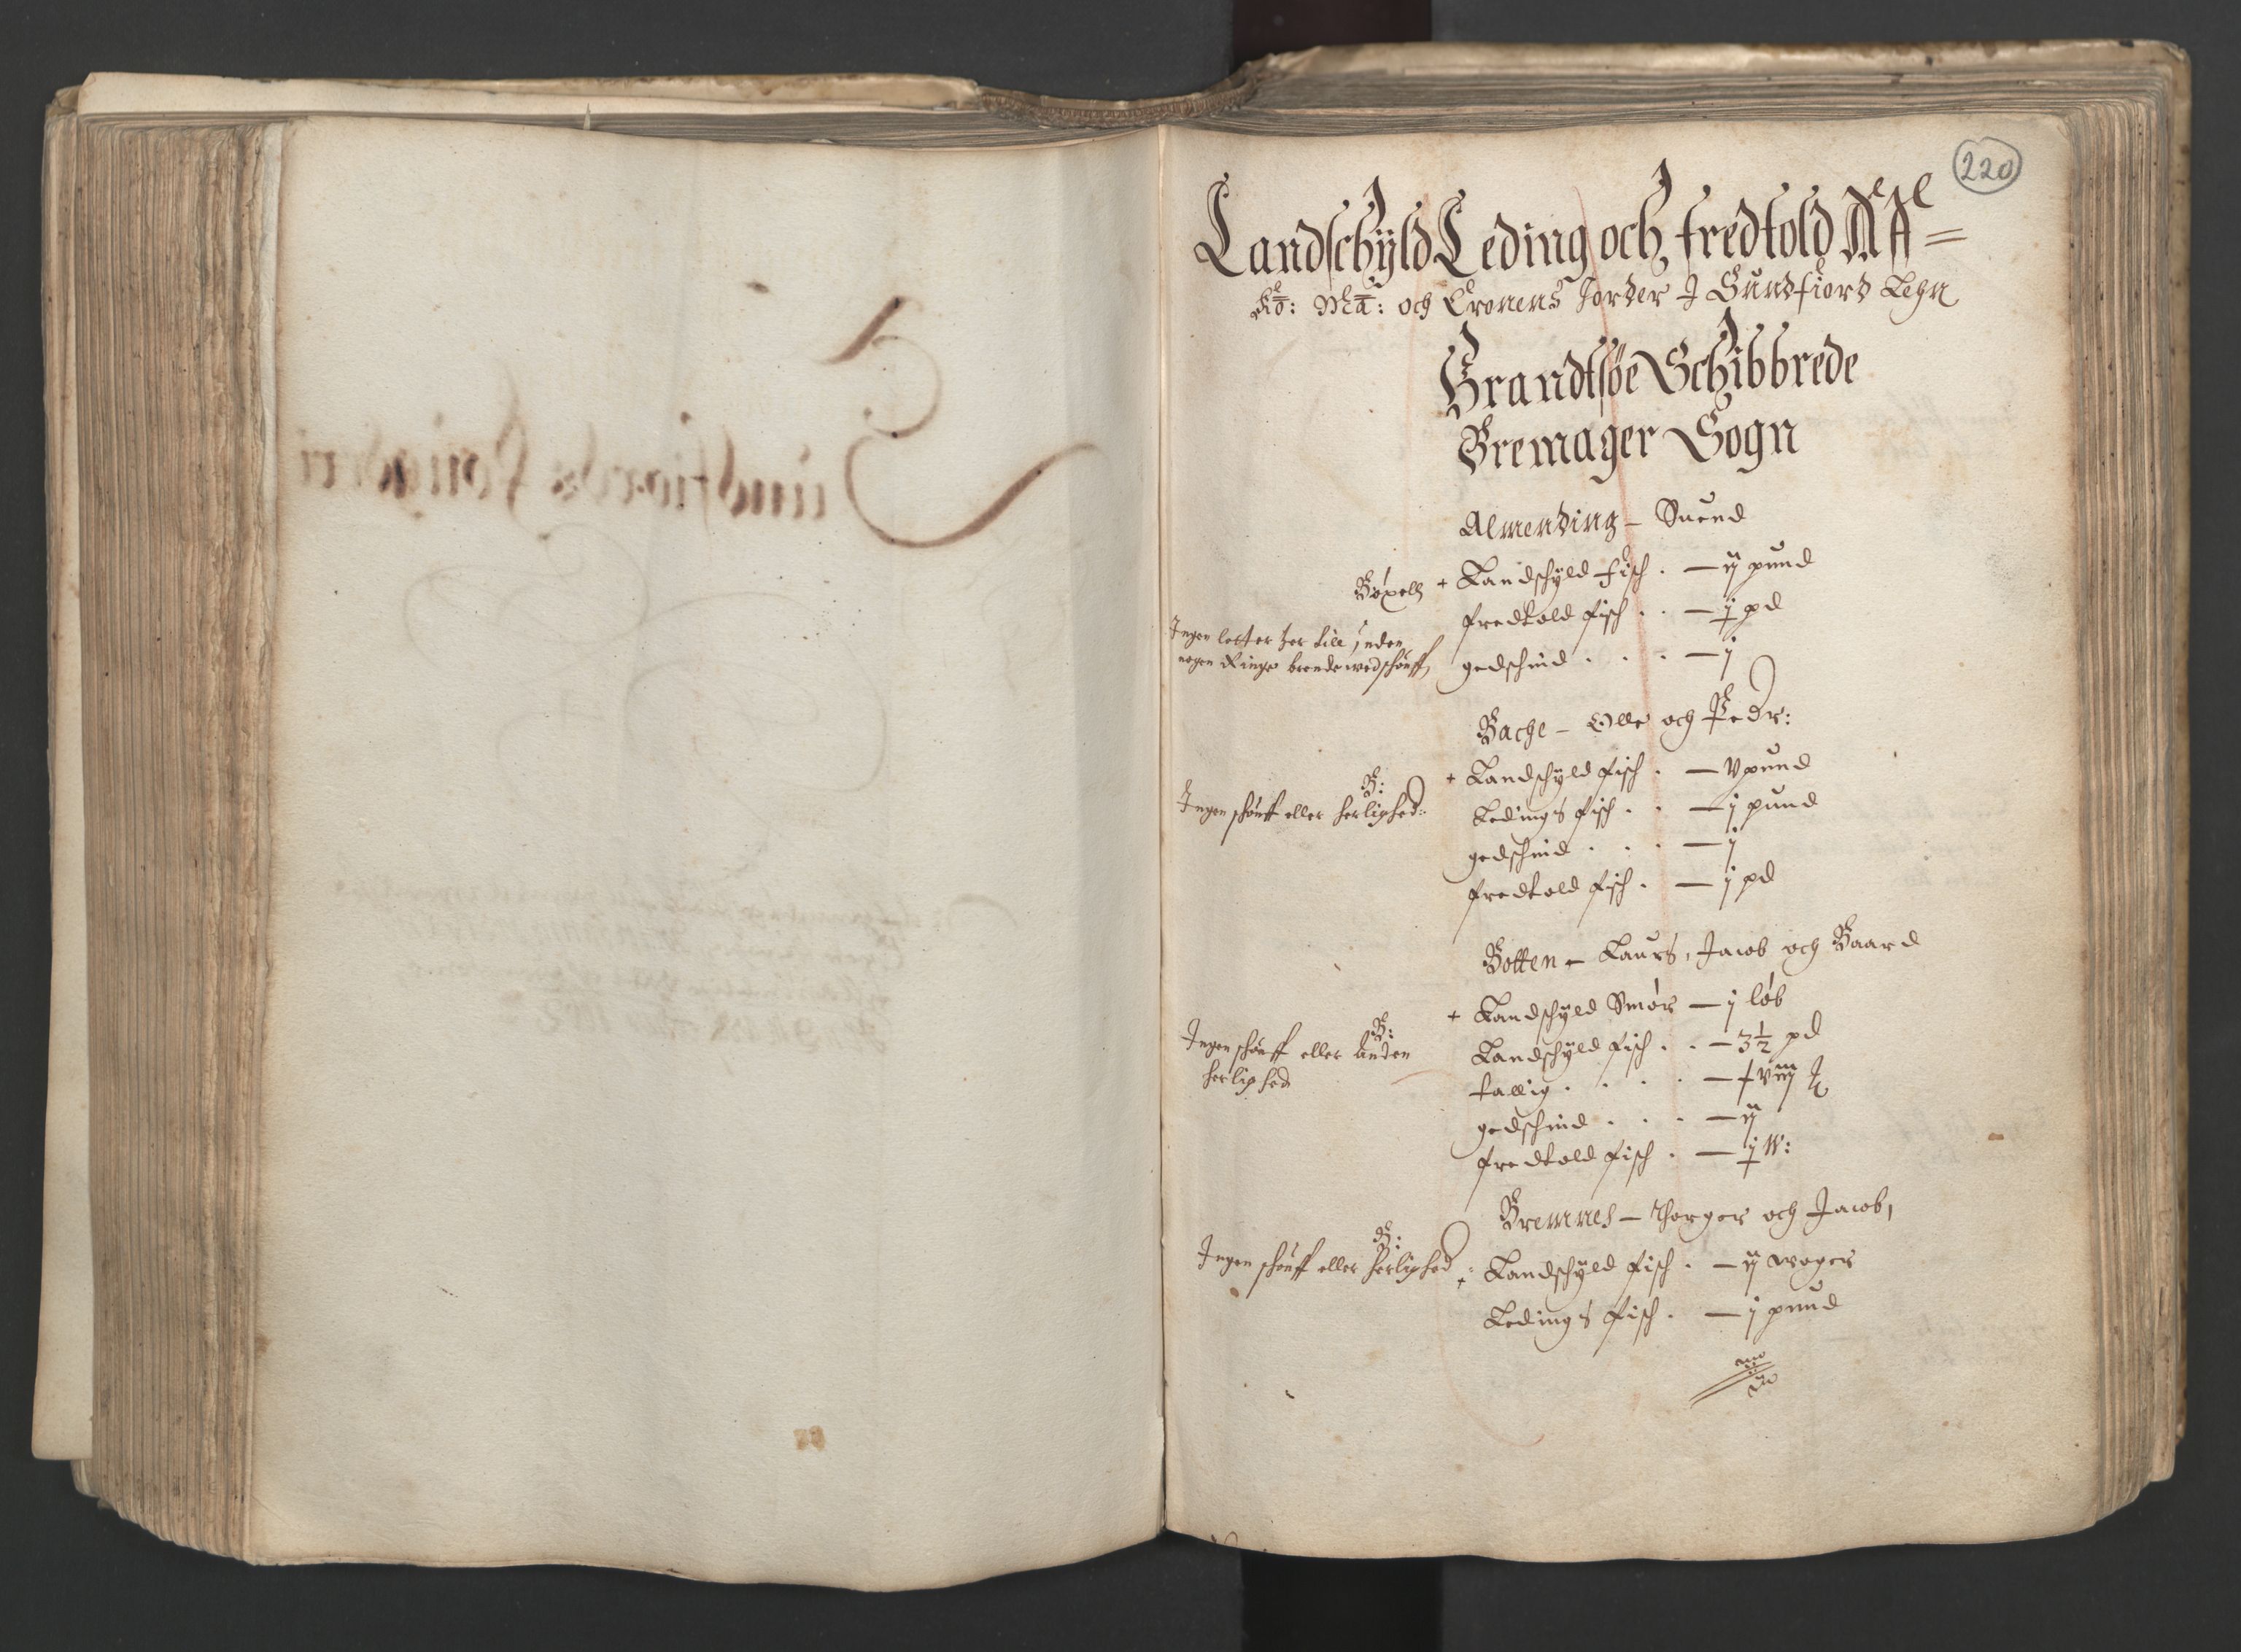 220
Landschÿld Leding och fredtold Aff
Ko: Ma: och Cronens Jorder J Sundfiord Lehn
Brandtsøe Schibbrede
Bremager Sogn
Almending – Suend
Bøxell + Landschyld fisch . — ij pund
fredtold fisch . . — j pd
Ingen letter ter till, inden
nogen Ringe brende wed schouff
gedschind . . . — j
Bache – Olle och Pedr:
B: + Landschyld fisch . — v pund
Ingen schouff eller herlighed:
Ledings fisch . . — j pund
gedschind . . . — j
fredtold fisch . — j pd
Botten – Laurs, Jacob och Baard
+ Landschyld Smør — j løb
B: Landschyld fisch . . — 3½ pd
Ingen schouff eller anden
herlighed
tallig . . . . — viij
gedschind . . . — ij
fredtold fisch . — j W:
Bremnes – Thorger och Jacob,
B: + Landschyld fisch . — ij woger
Ingen schouff eller herlighed
Ledings fisch . — j pund